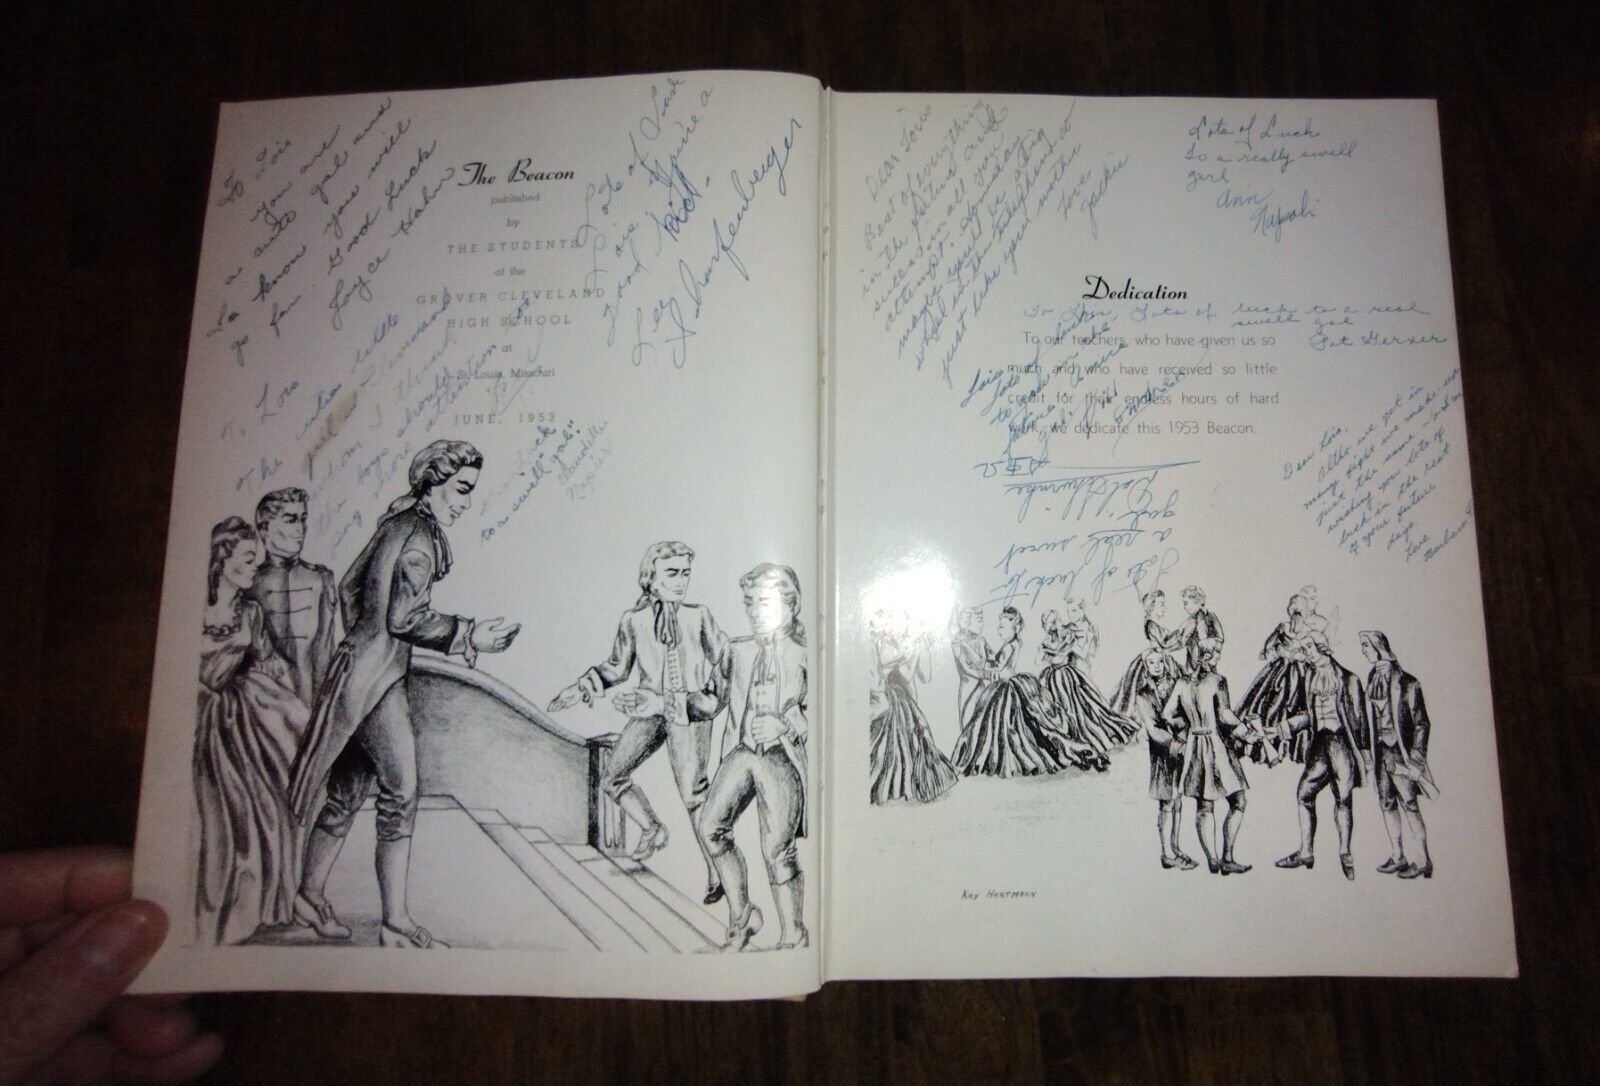 To Lois
you are
a cute gal and
to know you will
go far. Good Luck
Joyce Hahn
The Beacon
published
by
THE STUDENTS
of the
GROVER CLEVELAND
HIGH SCHOOL
at
St. Louis, Missouri
JUNE, 1953
Lots of Luck
Lois, You're a
good kid.
Lee Scharfenberger
To Lois
The
little
whom I think
the boys should
pay more attention
to
Luck
to a swell gal!"
Claudette
Napier
Dear Lois
Best of everything
in the future and
success in all you
attempt. Someday
maybe you'll be a
just like your mother
Love
Jackie
Lots of Luck
To a really swell
girl
Ann
Napoli
Dedication
To Lois, Lots of luck to a real
swell gal
Pat Gerner
To our teachers, who have given us so
much and who have received so little
credit for their endless hours of hard
work, we dedicate this 1953 Beacon.
Lois
Lots of luck
to
girl.
Lots of luck Lois
a real sweet
girl
Pat
Dear Lois,
Altho we get in
many fights we make-up
just the same. I am
wishing you lots of
luck in the rest
of your future
days.
Love
Barbara
KAY HARTMANN